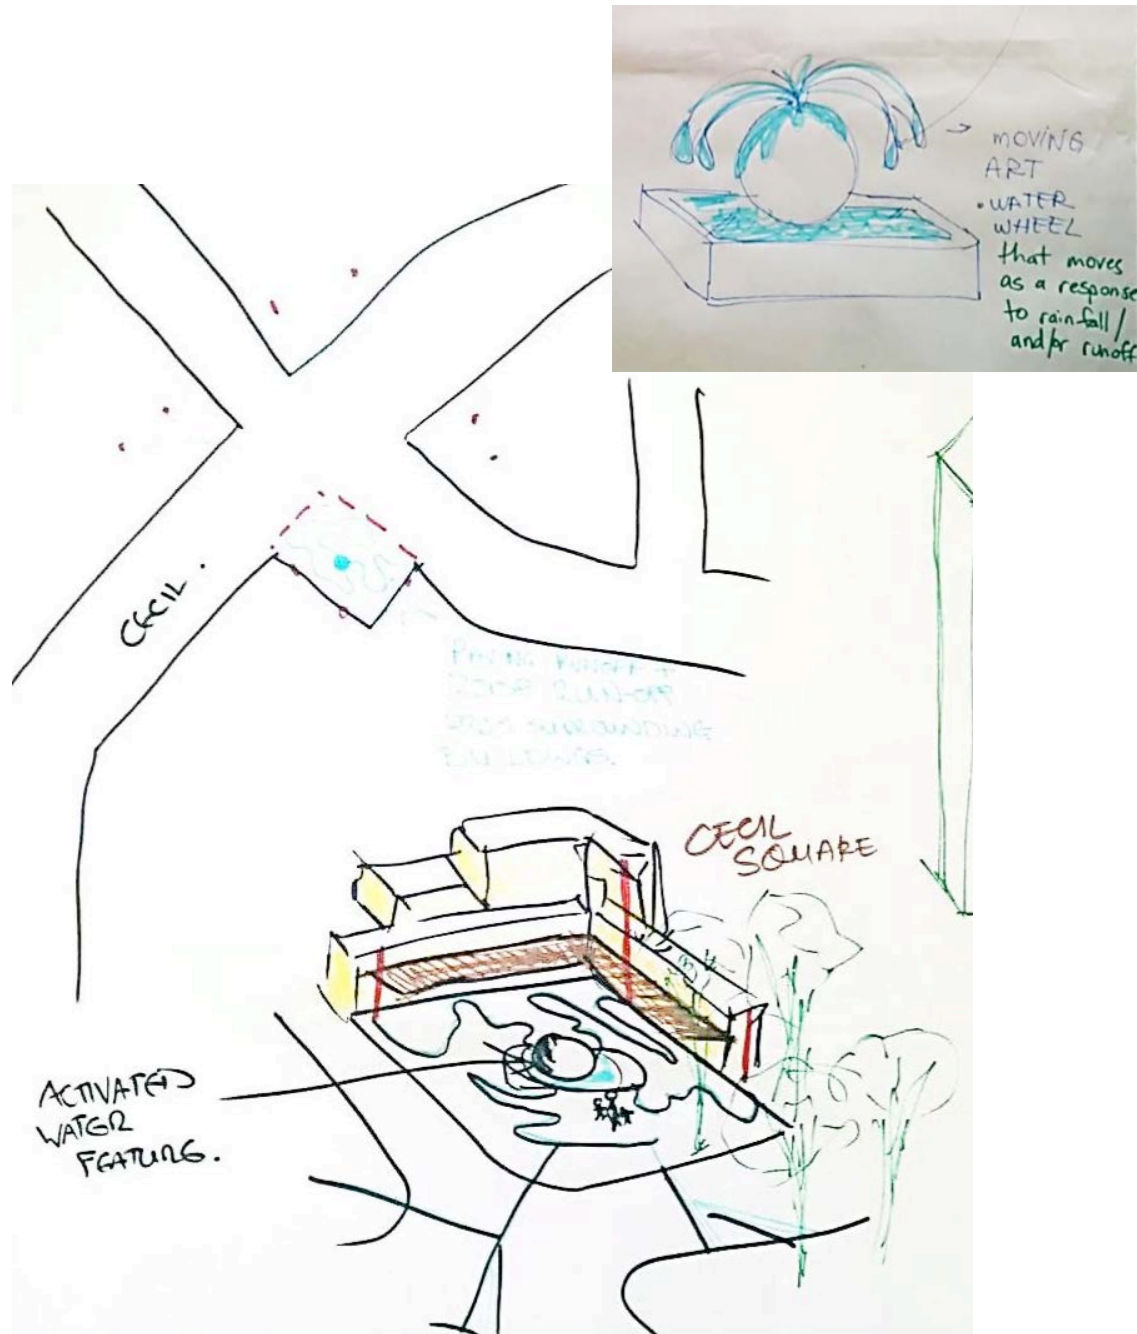 MOVING
ART
• WATER
WHEEL
that moves
as a response
to rainfall/
and/or runoff
CECIL.
PAVING RUNOFF +
ROOF RUN-OFF
FROM SURROUNDING
BUILDINGS.
CECIL
SQUARE
ACTIVATED
WATER
FEATURE.